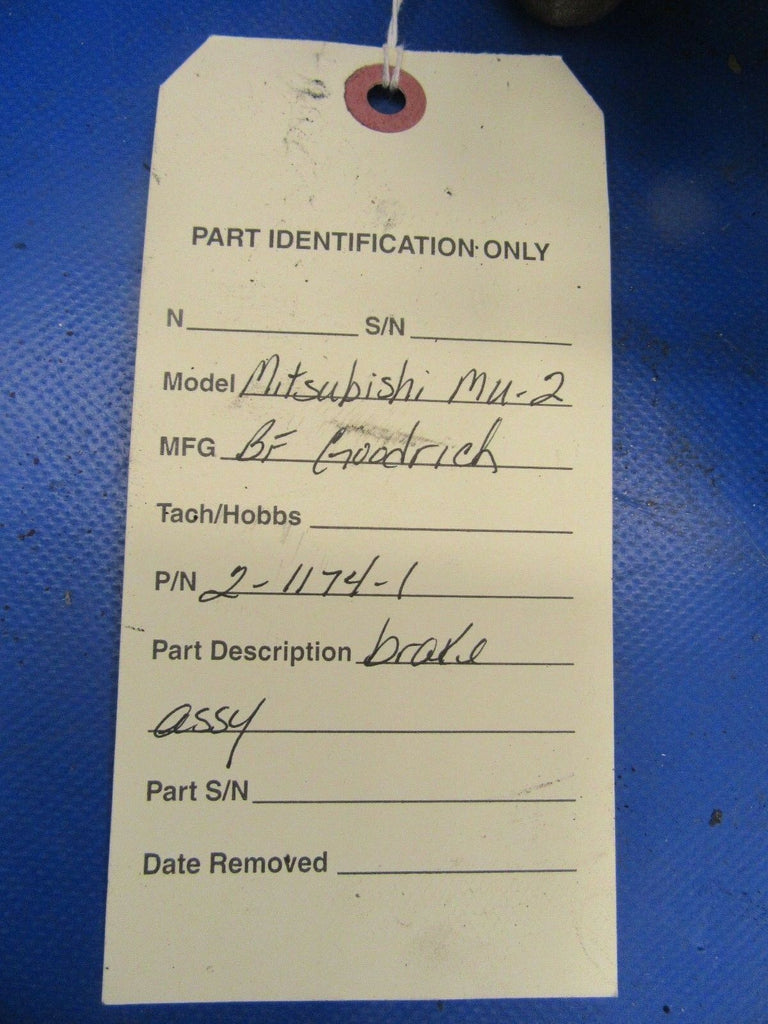 PART IDENTIFICATION ONLY
N S/N
Model Mitsubishi MU-2
MFG BF Goodrich
Tach/Hobbs
P/N 2-1174-1
Part Description brake
assy
Part S/N
Date Removed